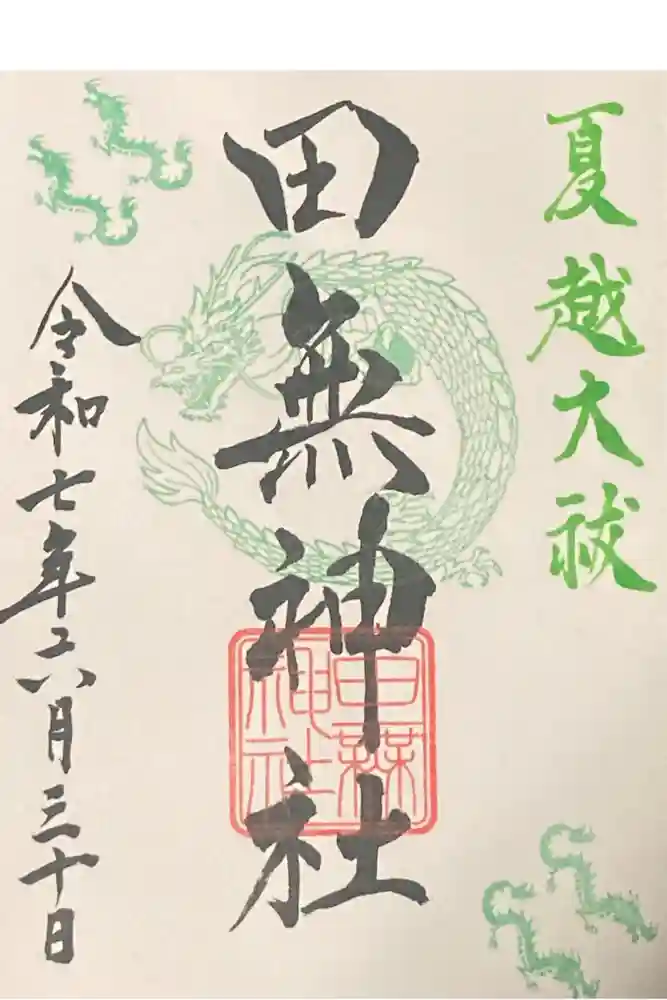 夏越大祓
田無神社
田無神社
令和七年六月三十日